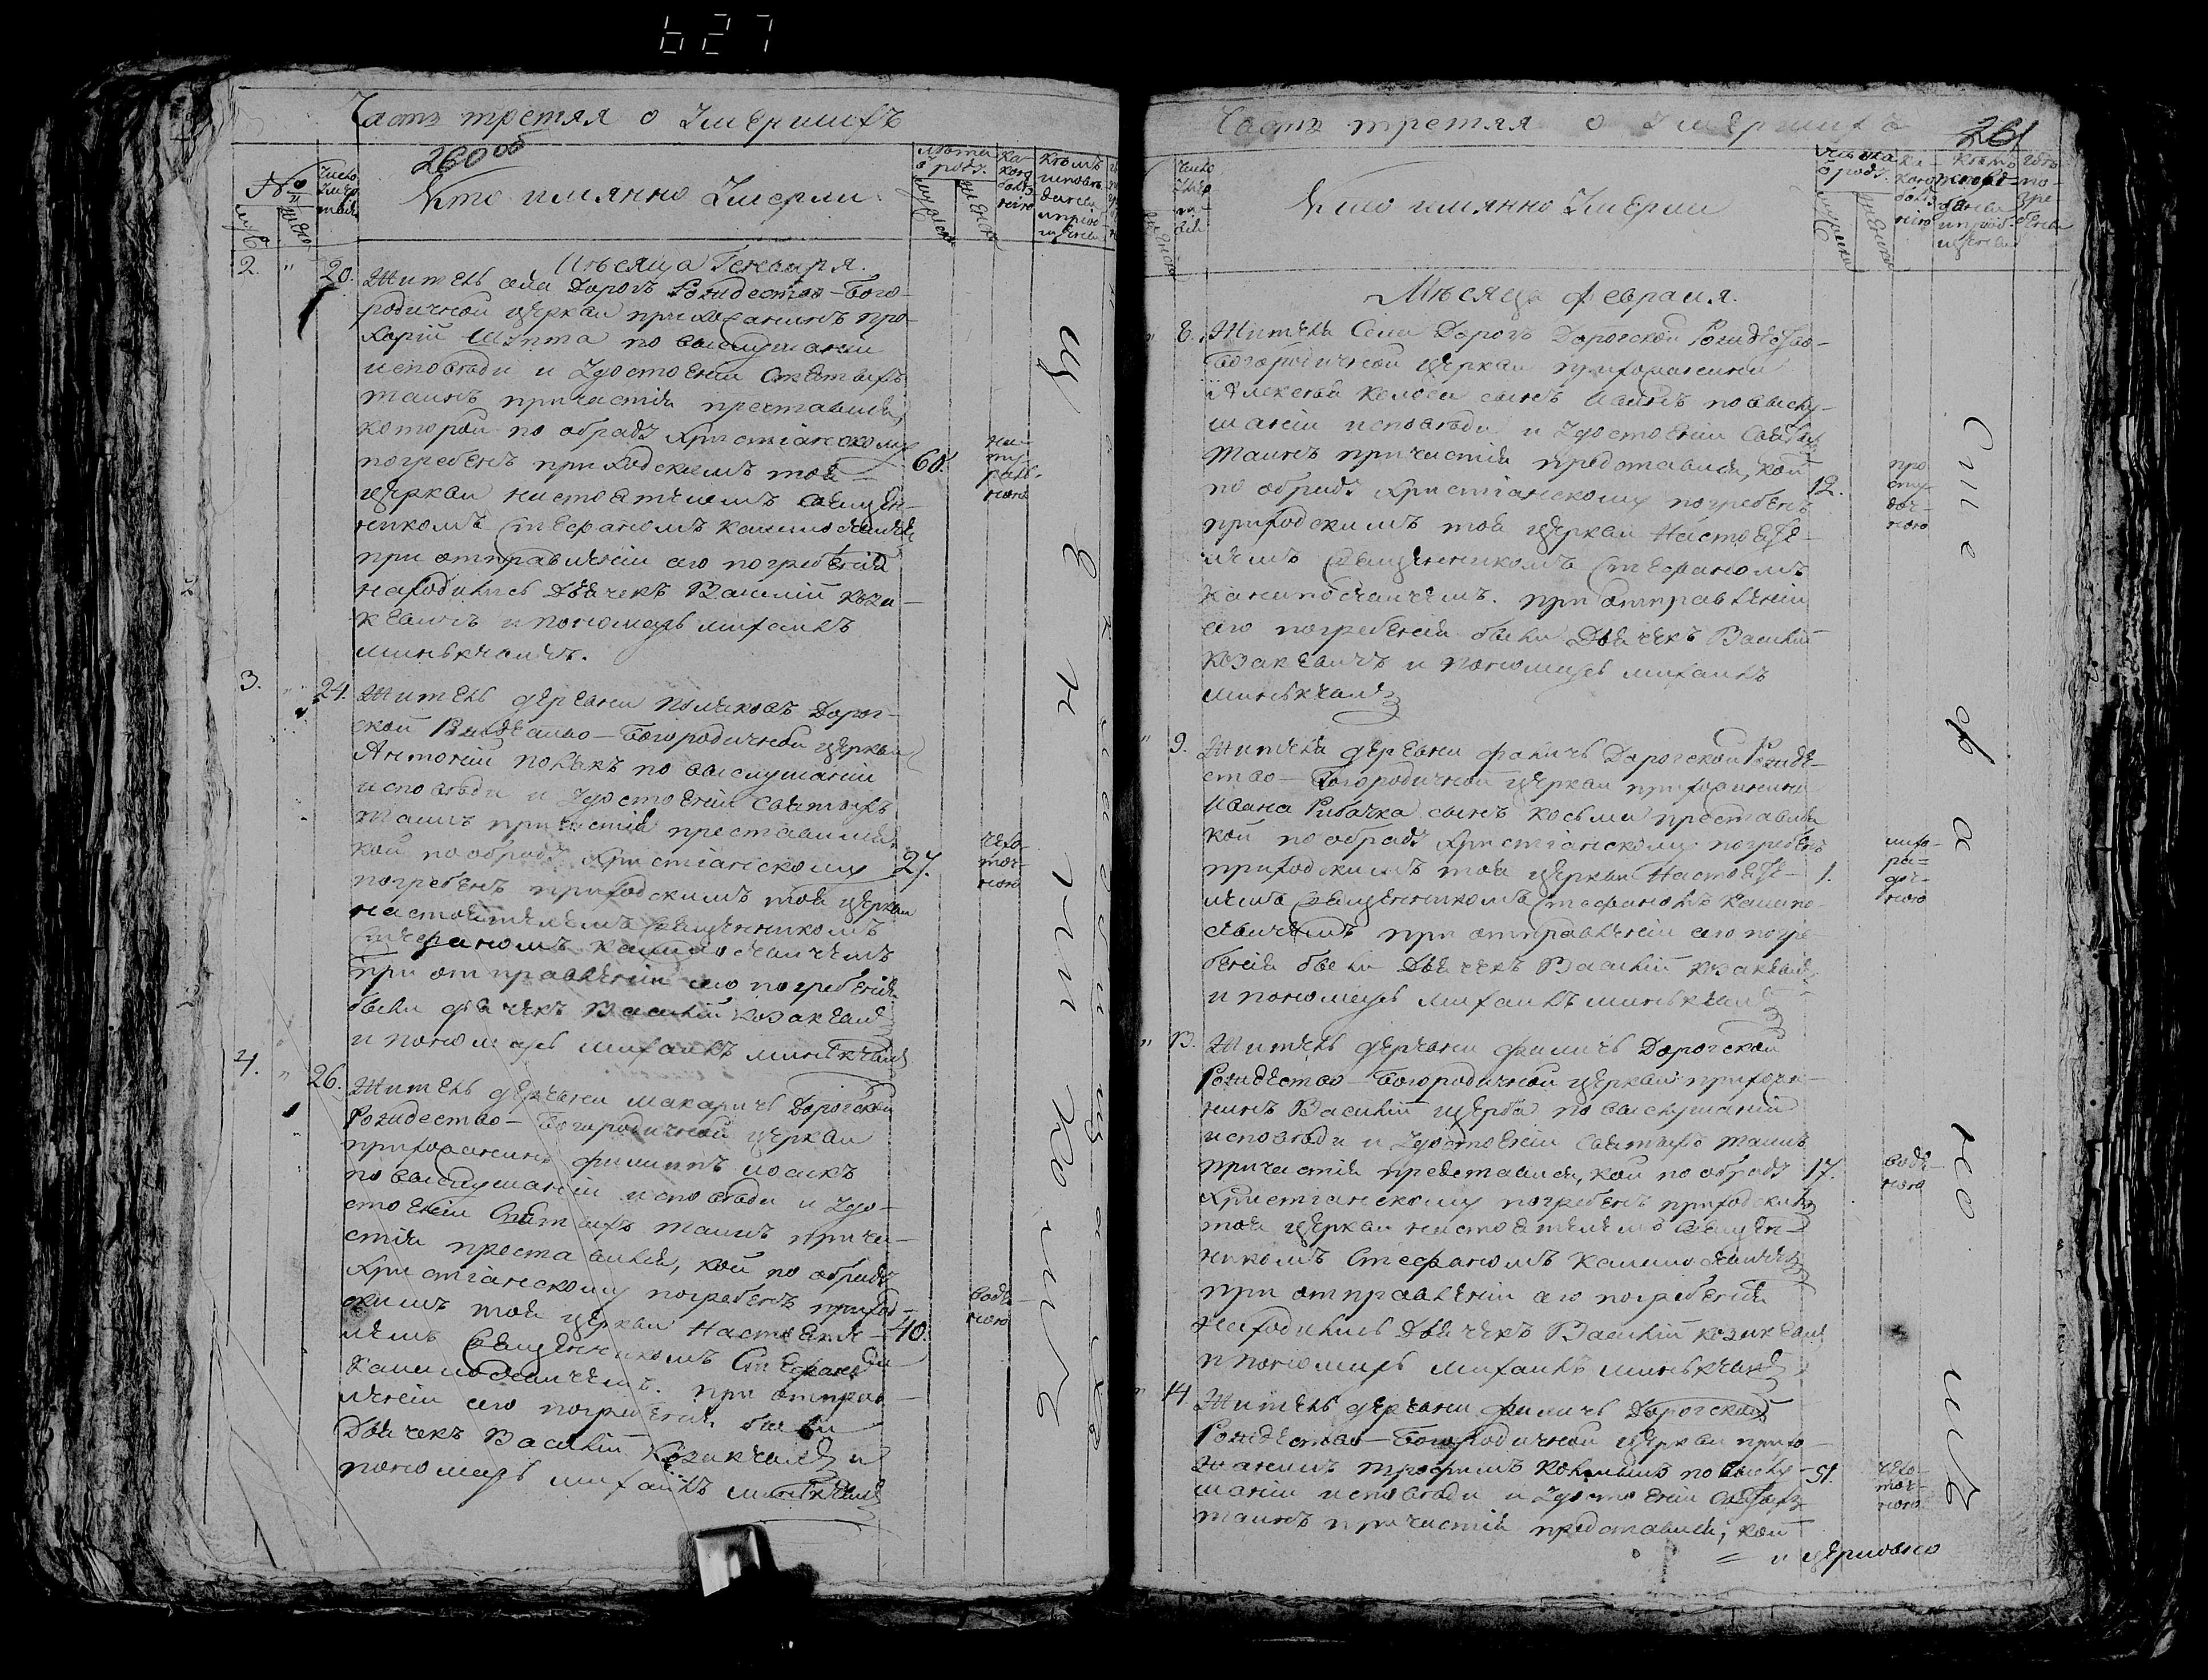 627
Часть третяя о Умершихъ
260 об
№
Число Умертвія
Кто имянно Умерли.
лѣта ѿ роду.
мужеска
женска
Какою болезнію
Мѣсяца Генваря.
2. " 20. Житель села Дорогъ Рождество-Бого-
родичной церкви прихожанинъ Про-
хорій Шупта по выслушаніи
исповѣди и Удостоеніи Святыхъ
таинъ причастія преставился,
которой по обряду Христіанскому
погребенъ приходскимъ той 60. натуральною
церкви настоятелемъ священ-
никомъ Стефаномъ
при отправленіи его погребенія
находились Дьячекъ Василій Коза-
кевичъ и пономарь михаилъ
минькевичъ.
3. " 24. Житель деревни Поляковъ Дорог-
ской Рождество-Богородичной церкви
Антоній Полякъ по выслушаніи
исповѣди и Удостоеніи Святыхъ
таинъ причастія преставился
кой по обряду Христіанскому 27. чахоточною
погребенъ приходскимъ той церкви
настоятелемъ Священникомъ
Стефаномъ
при отправленіи его погребенія
были дьячекъ Василій Козакевичъ
и пономарь михаилъ минькевичъ
4. " 26. Житель деревни макаричъ Дорогской
Рождество-Богородичной церкви
прихожанинъ филиппъ
по выслушаніи исповѣди и Удо-
стоеніи Святыхъ таинъ прича-
стія преставился, кой по обряду
Христіанскому погребенъ приход-
скимъ той церкви Настояте- 40. водяною
лемъ Священникомъ Стефаномъ
при отправ-
леніи его погребенія были
Дьячекъ Василій Козакевичъ и
пономарь михаилъ минькевичъ
Часть третяя о Умершихъ
261
Число Умертвія
Кто имянно Умерли
лѣта ѿ роду.
мужеска
женска
Какою болезнію
Мѣсяца февраля.
" 8. Житель Села Дорогъ Дорогской Рождество-
Богородичной церкви прихожанина
Алексѣя Колоса сынъ Иванъ по выслу-
шаніи исповѣди и Удостоеніи Святыхъ
таинъ причастія представился, кой
по обряду Христіанскому погребенъ 12. простудочною
приходскимъ той церкви Настояте-
лемъ Священникомъ Стефаномъ
при отправленіи
его погребенія были Дьячекъ Василій
Козакевичъ и пономарь михаилъ
минькевичъ
" 9. Житель деревни филичъ Дорогской Рожде-
ство-Богородичной церкви прихожанина
Ивана Рибачка сынъ Косьма представился
кой по обряду Христіанскому погребенъ
приходскимъ той церкви Настояте- 1. лихорадочною
лемъ Священникомъ Стефаномъ
при отправленіи его погре-
бенія были Дьячекъ Василій Козакевичъ
и пономарь михаилъ минькевичъ
" 13. Житель деревни филичъ Дорогской
Рождество-Богородичной церкви прихожа-
нинъ Василій щерба по выслушаніи
исповѣди и Удостоеніи Святыхъ таинъ
причастія представился, кой по обряду 17. водяною
Христіанскому погребенъ приходскимъ
той церкви настоятелемъ Священ-
никомъ Стефаномъ
при отправленіи его погребенія
находились Дьячекъ Василій Козакевичъ
и пономарь михаилъ минькевичъ
" 14. Житель деревни филичъ Дорогской
Рождество-Богородичной церкви прихо-
жанинъ трофимъ по выслу- 51. чахоточною
шаніи исповѣди и Удостоеніи Святыхъ
таинъ причастія представился, кой